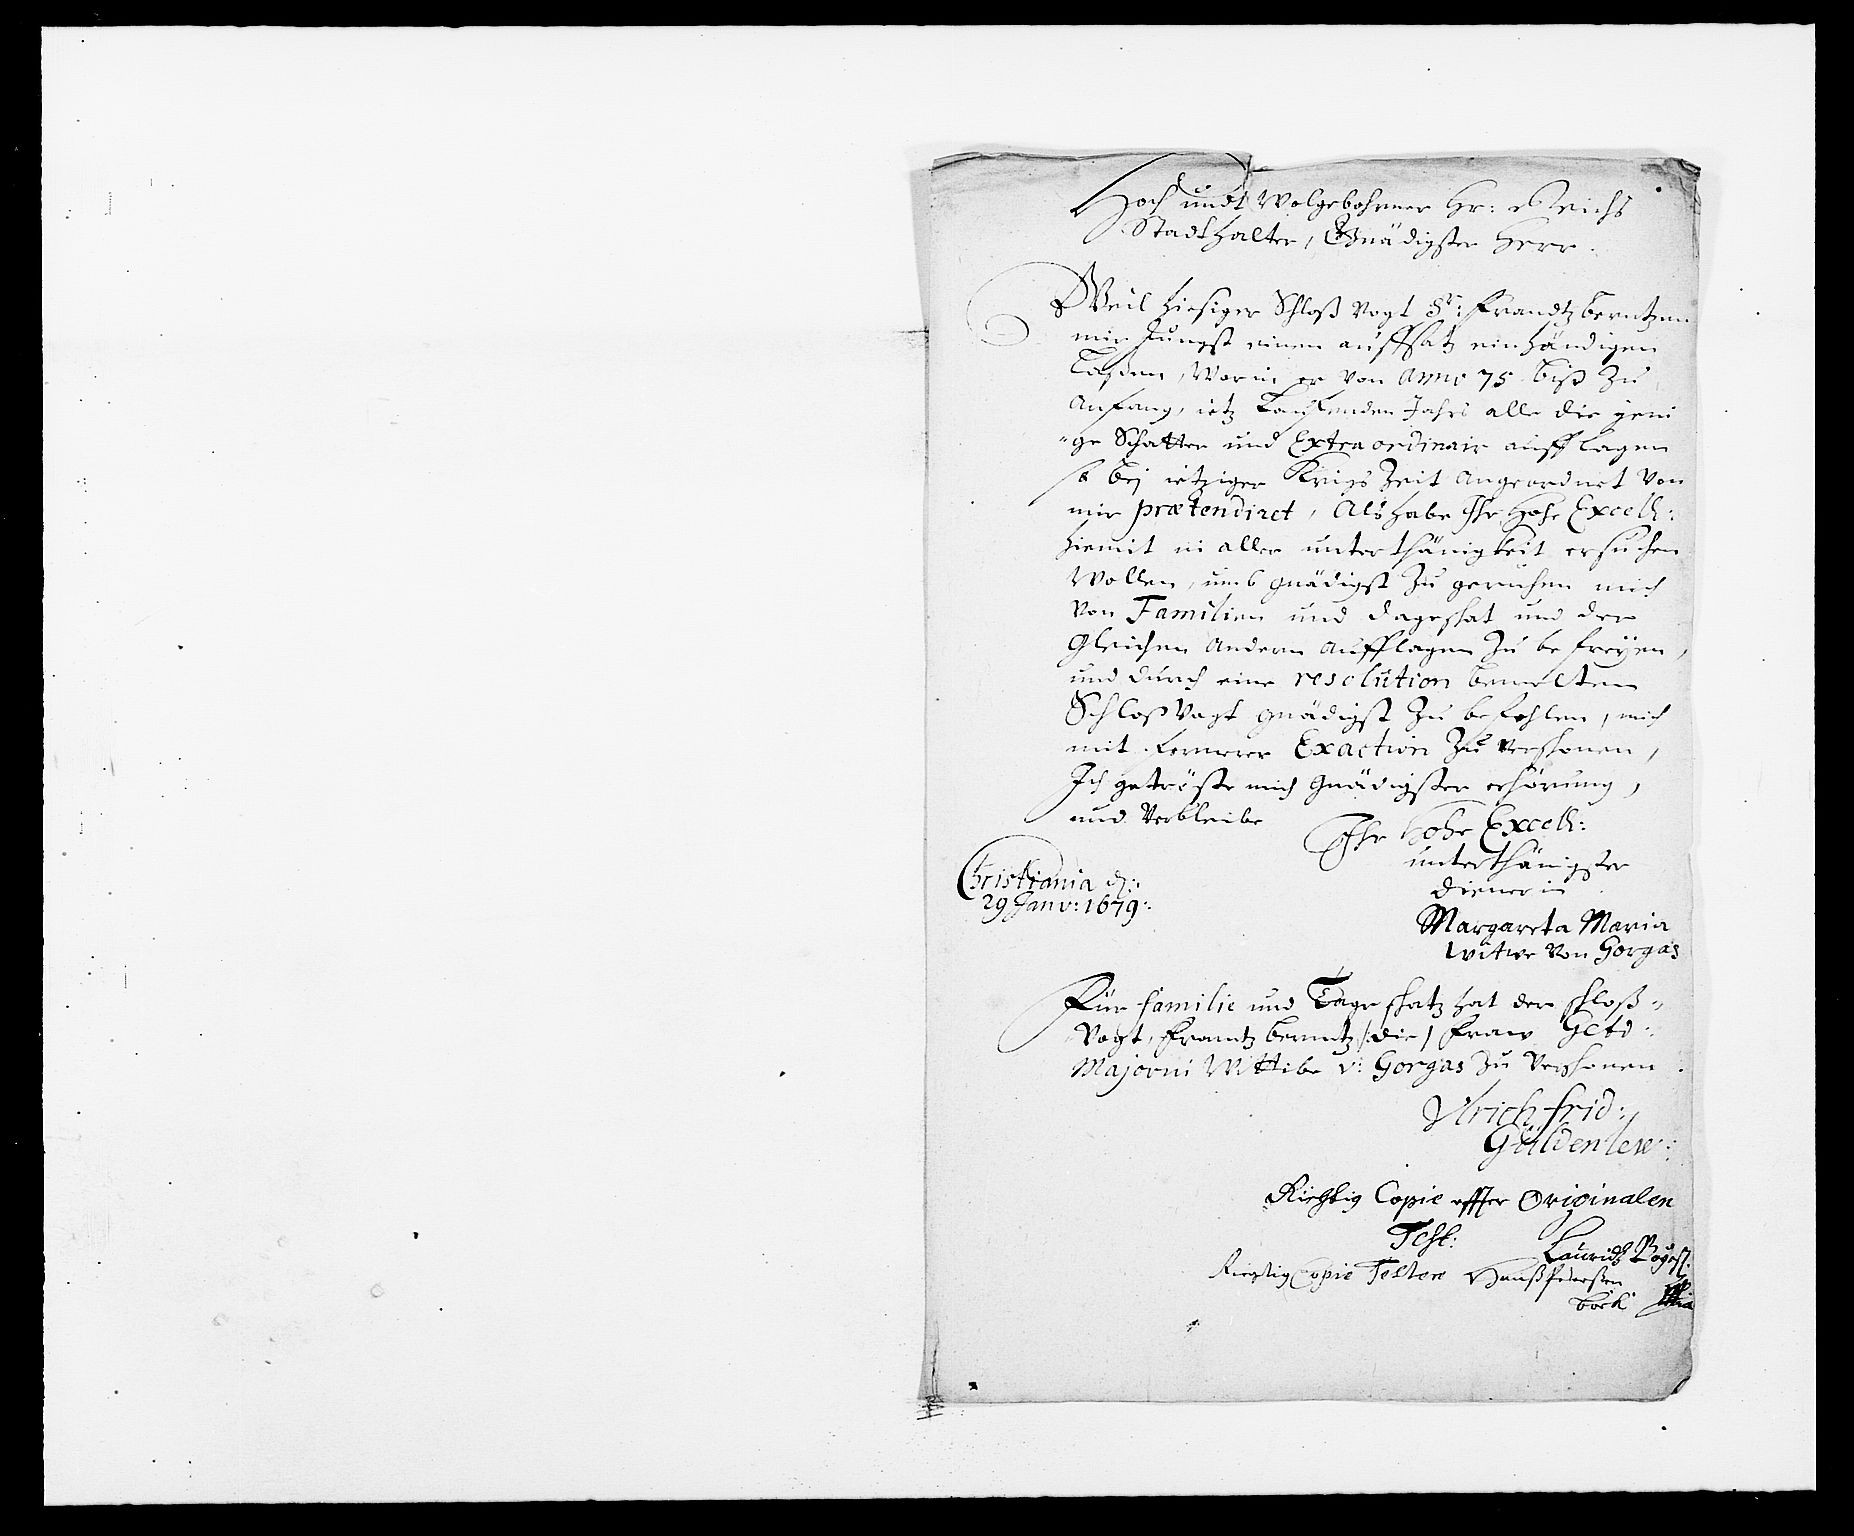 Hoch undt Wolgebohrner Hr: Reichs
Stadthalter, Gnädigster Herr.
Weil hiesiger Schloß Vogt Sr: Frandtz Berntzen
mir Jungst einen auffsatz einhändigen
Laßen, Worin er von Anno 75 biß Zu
Anfang, ietz Lauffenden Jahrs alle die jeni
"ge Schatten und Extraordinair aufflagen
so bej ietziger Krigs Zeit angeordnet von
mir prætendiret, Als habe Ihr Hohe Excell:
hiemit in aller unterthänigkeit ersuchen
Wollen, umb gnädigst Zu geruhen mich
von Familien und dageshat und der
gleichen andern aufflagen Zu befreyen,
und durch eine resolution bemelten
Schloß Vagt gnädigst Zu befehlen, mich
mit fernerer Exaction Zu vershonen,
Ich getröste mich gnädigster erhörung,
und Verbleibe
Ihr Hohe Excell:
unterthänigster
dienerin
Christiania d:
29 Janv: 1679:
Margareta Maria
witwe von Gorgas
Für familie und Tage shatz hat der shloß-
Vogt, Frantz berentz /die/ Fraw
Majorin Wittibe v: Gorgas Zu Vershonen
Ulrich frid:
Güldenlew:
Richtig Copie effter Originalen
Test:
Lauridtz
Rigtig Copie Testerer Hanß Pederßen